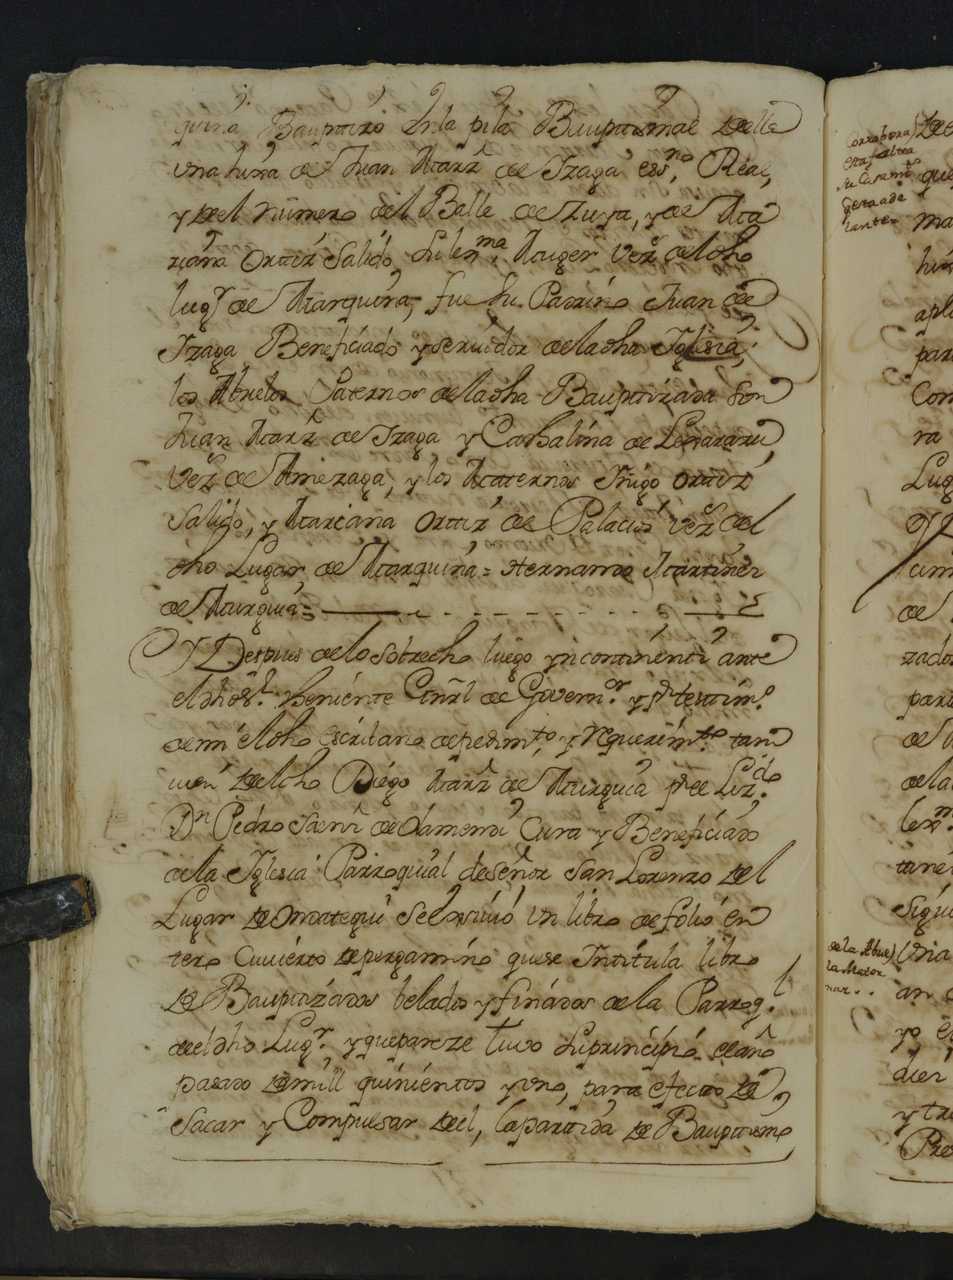 quina Bauptizó en la pila Bauptismal de ella
una hixa de Juan Marz de Yzaga ess.no Real,
y del número del Balle de Zuya, y de Ma
riana Ortiz Salido su lexma muger vez.s del dho
lugr de Marquina, fue su Padrino Juan de
Yzaga Beneficiado y servidor de la dha Yglesia,
los Abuelos Paternos de la dha Bauptizada son
Juan Marz de Yzaga y Cathalina de
vez.s de Amezaga, y los Maternos Yñigo Ortiz
Salido, y Mariana Ortiz de Palacio vez.s del
dho Lugar de Marquina = Hernando Martinez
de Murguia =
Y Despues de lo sobredho luego yncontinenti ante
el dho s.r theniente Gñral de Govern.or y pr testim.o
de mi el dho escribano de pedimto y requerimto tam
vien del dho Diego Marz de Murguia pr el Liz.do
Dn Pedro Saenz de Olamendi Cura y Beneficiado
de la Yglesia Parroquial de señor San Lorenzo del
Lugar de Ondategui se exsivió un libro de folio en
tero Cuvierto de pergamino que se Yntitula libro
de Bauptizados belados y finados de la Parroq.l
del dho Lugr y que pareze tuvo su principio el año
pasado de mill quinientos y uno, para efecto de
sacar y Compulsar del, la partida de Bauptismo
Corrobora
esta faltta
su Casamto
que
ma
apli
par
Con
ra
Lug
de
zados
par
de la
tane
Sigui
de la Abue
la Mater
na
Una
an
yo
dier
y tr
Pre